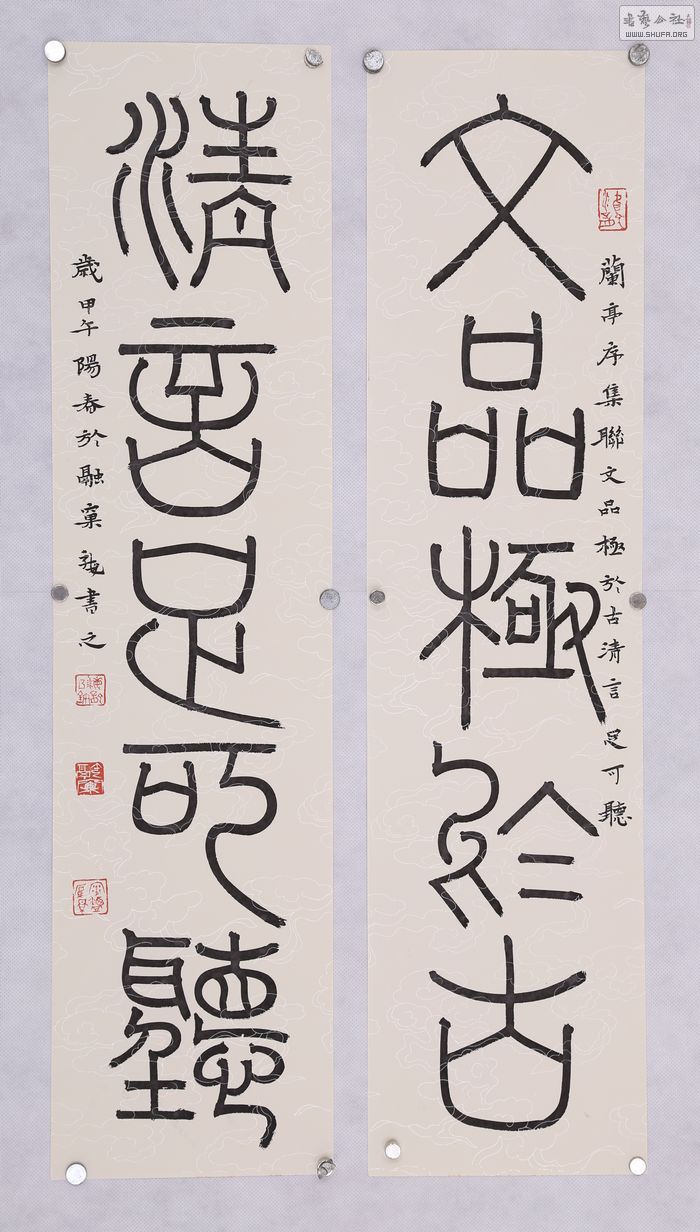 文品極於古
蘭亭序集聯文品極於古清言足可聽
清言足可聽
歲甲午陽春於融窠龍書之
書法公社
WWW.SHUFA.ORG